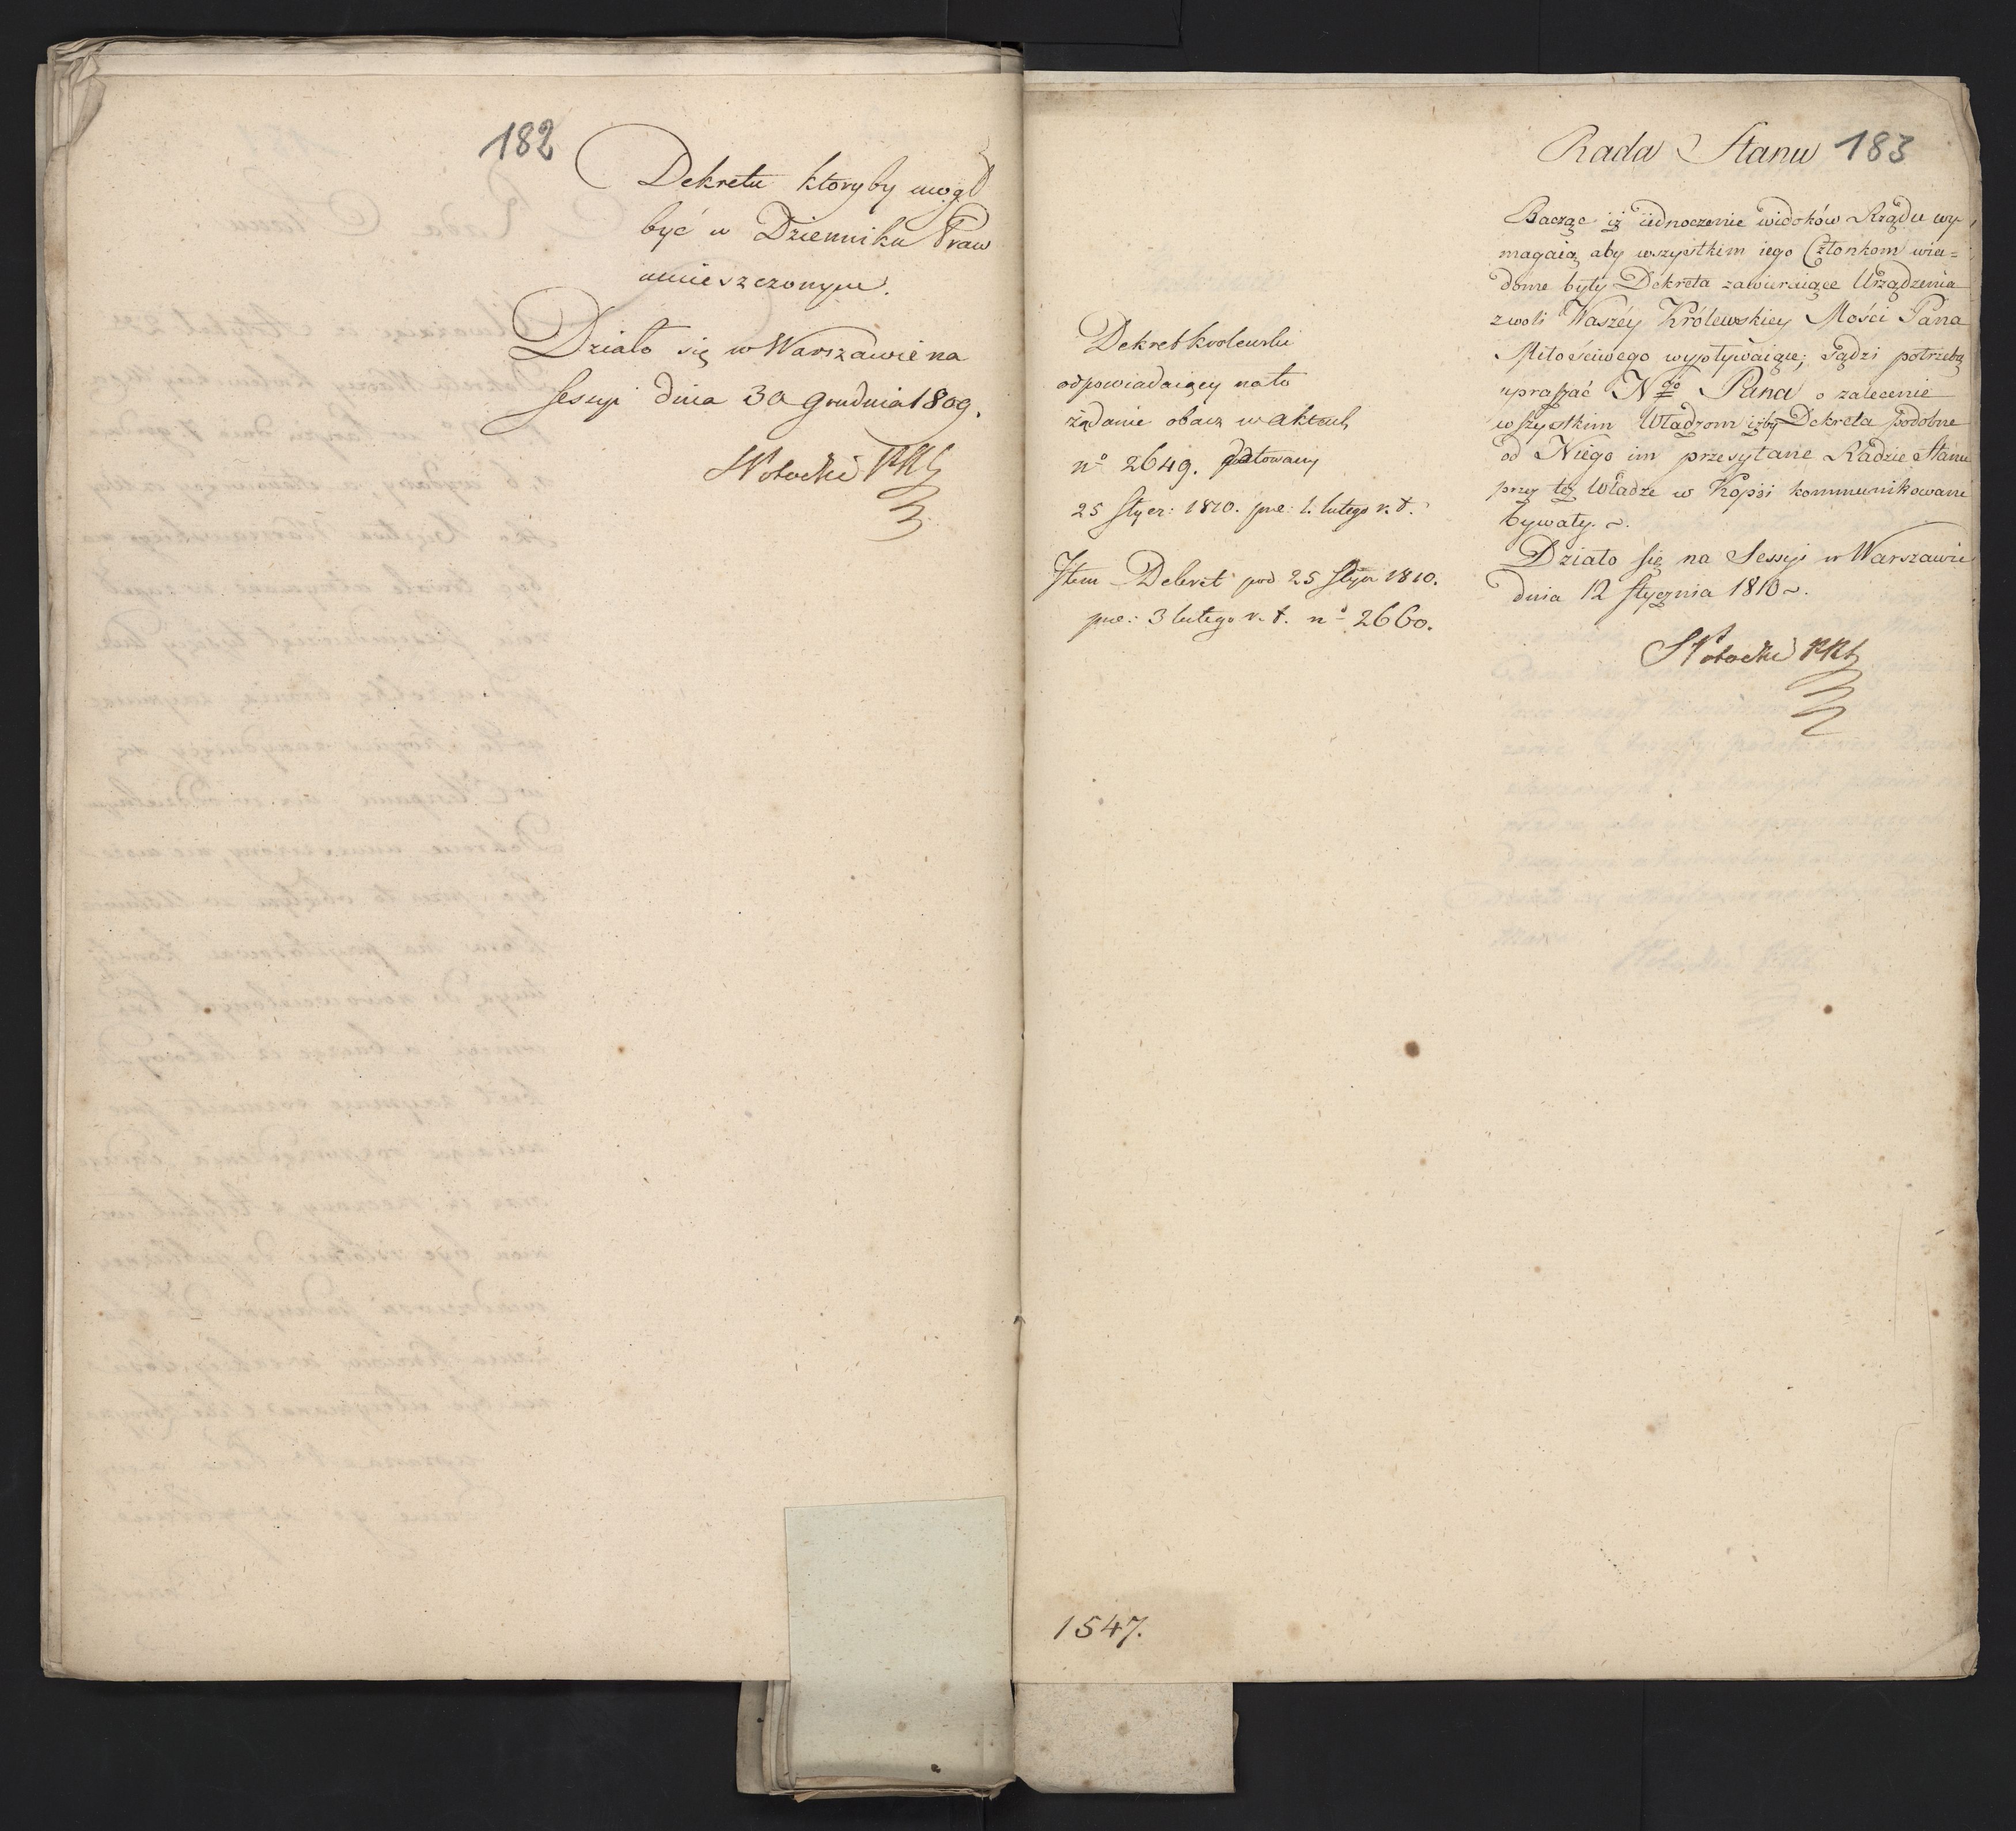 182
Dekretu ktoryby mogł
być w Dzienniku Praw
umieszczonym.
Działo się w Warszawie na
Sessyi dnia 30 Grudnia 1809.
SPotocki PRS
183
Rada Stanu
Bacząc iż iednoczenie widoków Rządu wy-
magaią aby wszystkim iego Członkom wia=
dome były Dekreta zawieraiące Urządzenia
z woli Waszéy Królewskiey Mości Pana
Miłościwego wypływaiące; sądzi potrzebą
upraszać N<sup>go</sup> Pana o zalecenie
wszystkim Władzom iżby Dekreta podobne
od Niego im przesyłane Radzie Stanu
przez też Władze w Kopii kommunikowane
bywały.
Działo się na Sessyi w Warszawie
dnia 12 Stycznia 1810.
SPotocki PRS
Dekret krolewski
odpowiadaiący na to
żądanie obacz w aktach
nº 2649. datowany
25 Stycz: 1810. pre: 1. lutego r. t.
Item Dekret pod 25 Stycz 1810.
pre: 3 lutego r. t. nº 2660.
1547.